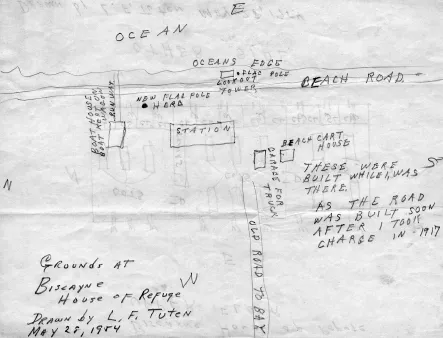 E
OCEAN
OCEANS EDGE
FLAG POLE
LOOKOUT
TOWER
BEACH ROAD
BOAT HOUSE
BOAT ROOM
WAGON
RUNWAY
NEW FLAG POLE
HERE
STATION
BEACH CART
HOUSE
GARAGE FOR
TRUCK
THESE WERE
BUILT WHILE I WAS
THERE.
AS THE ROAD
WAS BUILT SOON
AFTER I TOOK
CHARGE IN 1917
S
N
OLD ROAD TO BAY
W
GROUNDS AT
BISCAYNE
HOUSE OF REFUGE
DRAWN BY L. F. TUTEN
MAY 28, 1954